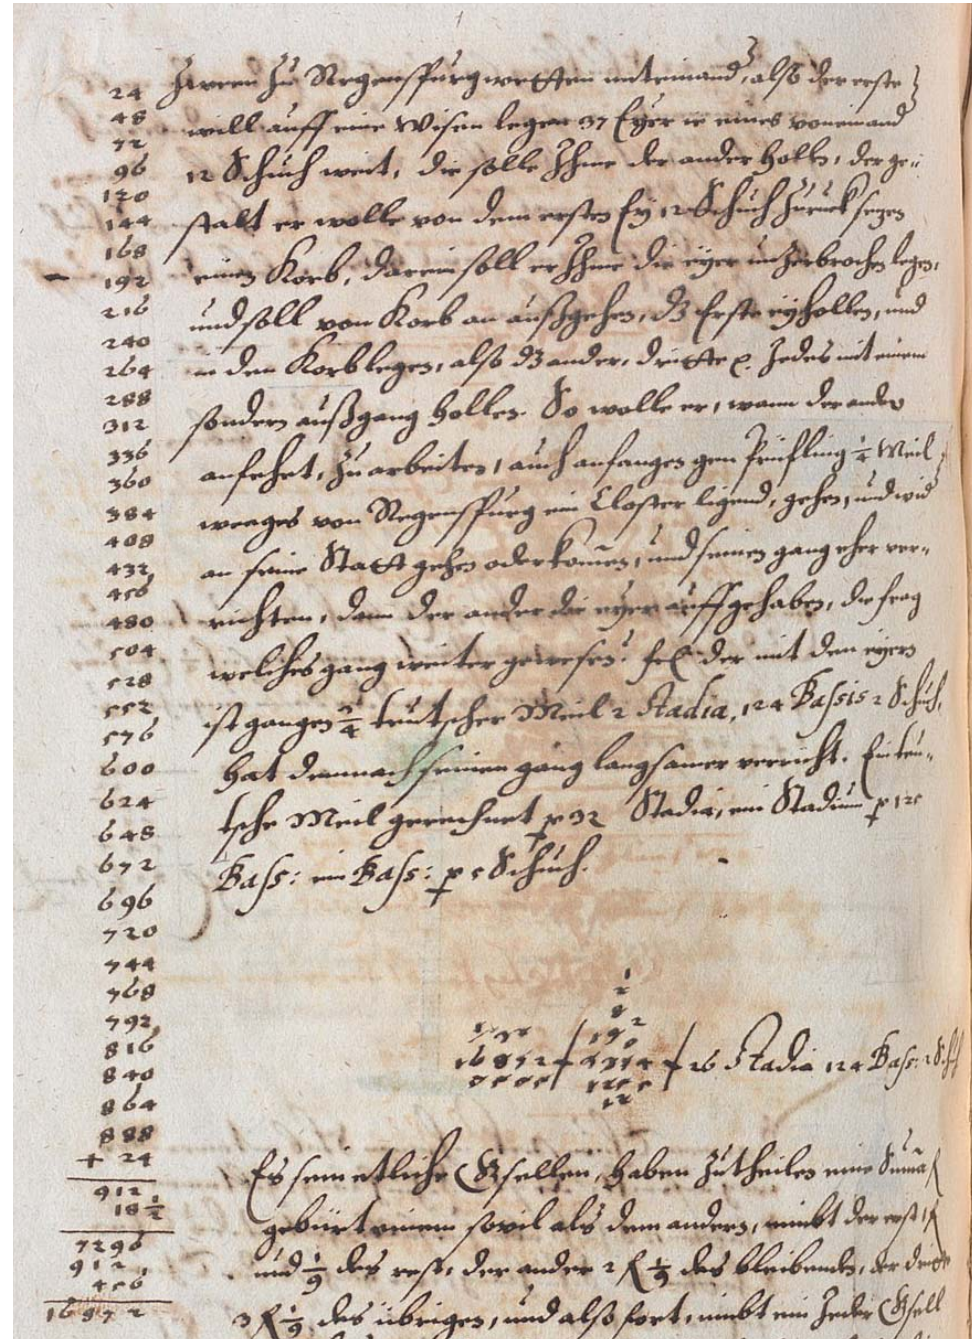 24
48
72
96
120
144
168
192
216
240
264
288
312
336
360
384
408
432
456
480
504
528
552
576
600
624
648
672
696
720
744
768
792
816
840
864
888
+ 24
912
18 1/2
7296
912
456
16872
Zween zu Regenspurg wetten miteinand, alß der erste
will auff eine Wisen legen 37 Eyer ie eines voneinand
12 Schuch weit, die solle Ihme der ander hollen, der ge-
stalt er wolle von dem ersten Ey 12 Schuch zuruck sezen
einen Korb, darein soll er Ihme die eyer unzerbrochen legen,
und soll von Korb an außgehen, dz Erste ey hollen, und
in den Korb legen, alß dz ander, dritte Jedes mit einem
sondern außgang hollen. So wolle er, wann der ander
anfehet, zu arbeiten, auch anfangen gen Prüfling 1/4 Meil
weeges von Regenspurg ein Closter ligend, gehen, und wid
an seine Statt gehen oder komen, und seinen gang eher ver-
richten, dann der ander die eyer auffgehaben, die frag
welches gang weiter gewesen. der mit den eyern
ist gangen 3/4 teutscher Meil 2 Stadia, 124 Passis 2 Schuch,
hat demnach seinen gang langsamer verricht. Ein teu-
tsche Meil gerechnet p 32 Stadia, ein Stadium p 125
Pass: ein Pass: p 5 Schuch.
26 Stadia 124 Pass: 2 Schuch
Es sein etliche Gsellen, haben zutheilen eine Suma
gebürt einem sovil als dem andern, nimbt der erst 1 f
und 1/9 des rests, der ander 2 f 1/9 des bleibenden, der dritte
3 f 1/9 des übrigen, und alß fort, nimbt ein Jeder Gsell